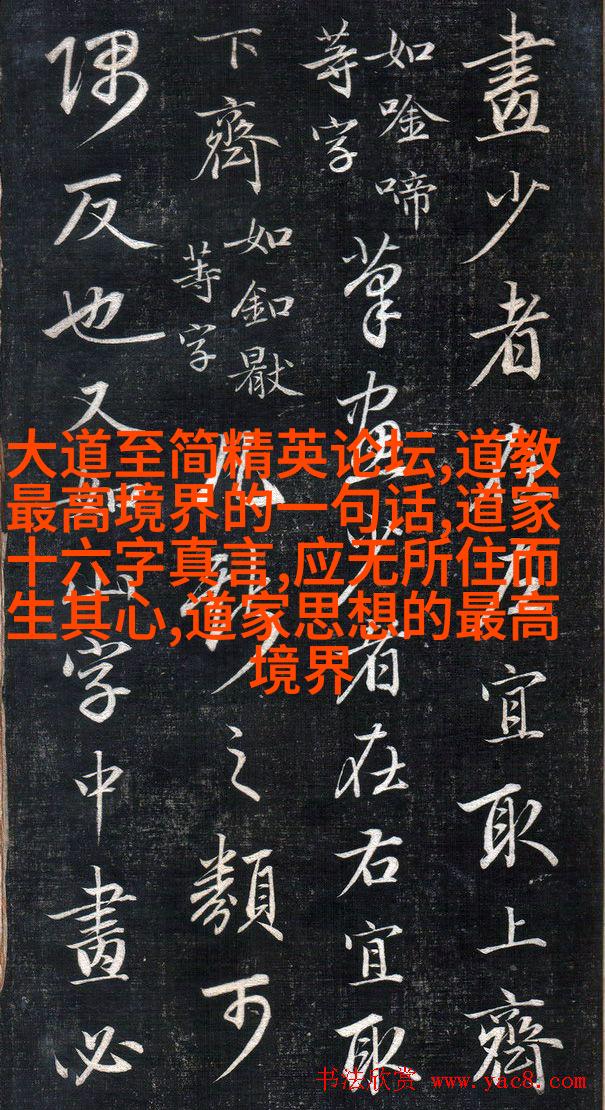 畫少者在左宜取上齊
如唫啼
等字
筆畫少者在右宜取
下齊
如釦
等字
之類可
隅反也又如山字中畫必
大道至简精英论坛,道教
最高境界的一句话,道家
十六字真言,应无所住而
生其心,道家思想的最高
境界
书法欣赏 www.yac8.com